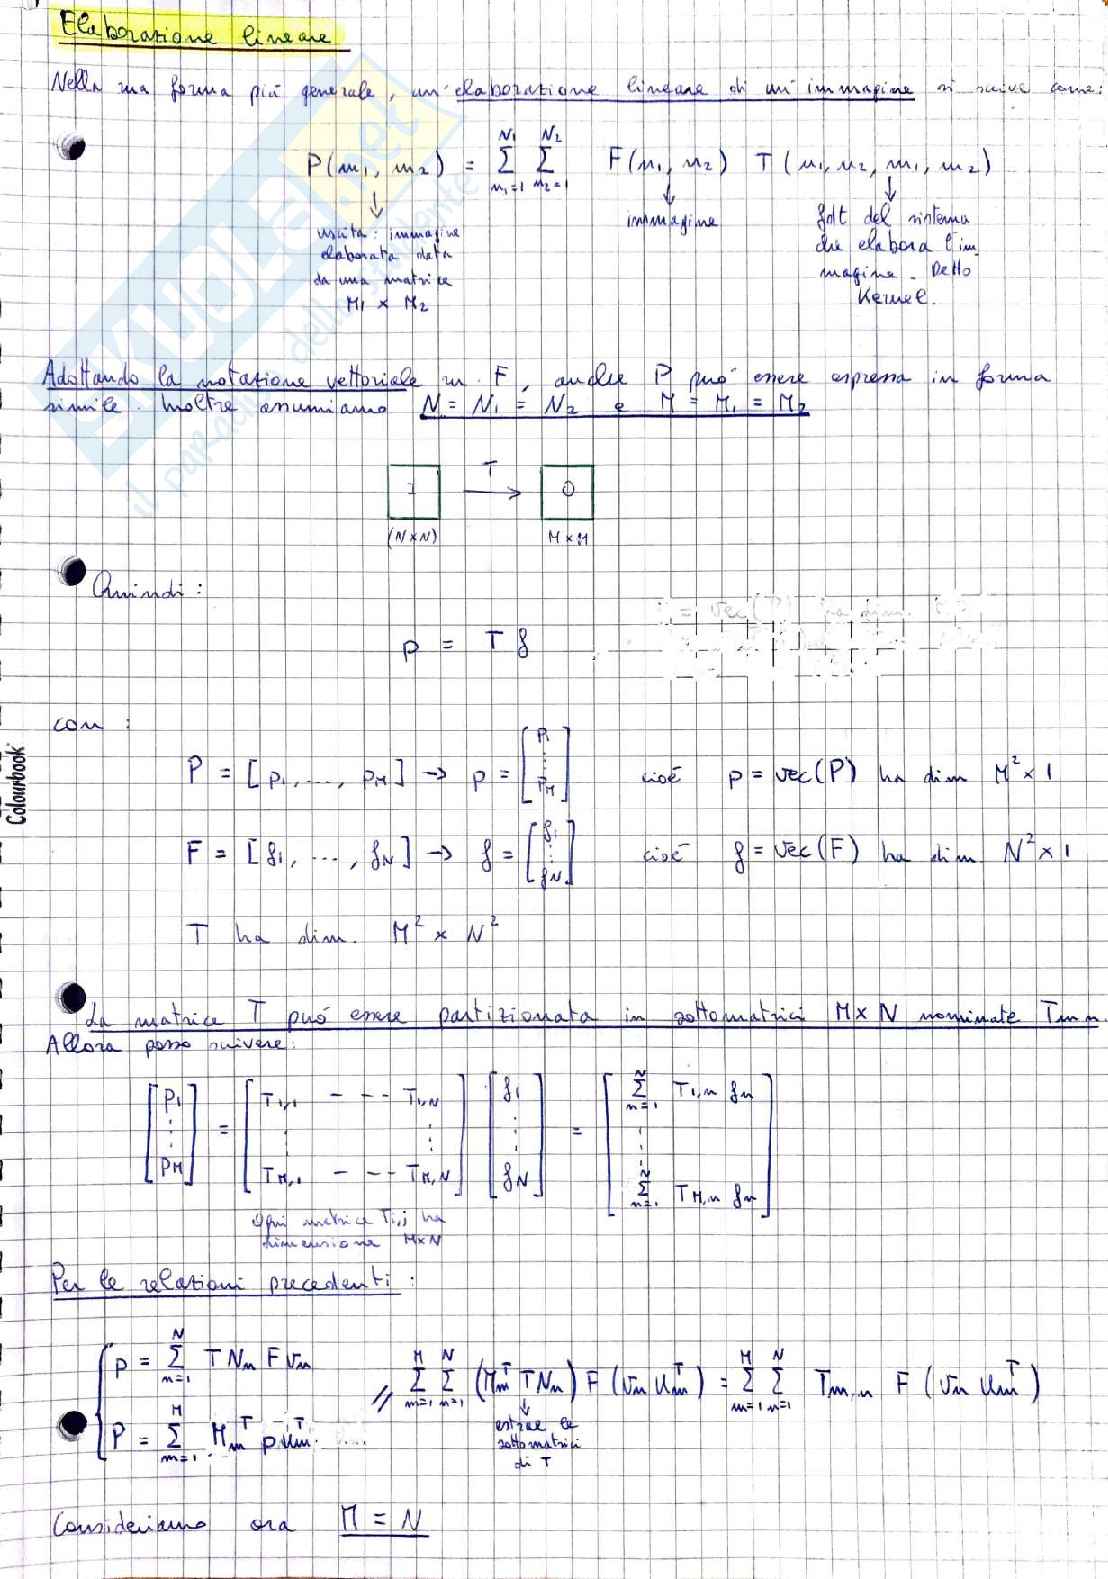 Elaborazione lineare
Nella sua forma più generale, un'elaborazione lineare di un'immagine si scrive come:
P(m1, m2) = Σ_{n1=1}^{N1} Σ_{n2=1}^{N2} F(n1, n2) T(n1, n2, m1, m2)
↓ ↓ ↓
uscita: immagine elaborata data da una matrice M1 x M2
immagine
fdt del sistema che elabora l'immagine. Detto Kernel.
Adottando la notazione vettoriale su F, anche P può essere espressa in forma
simile. Inoltre assumiamo N = N1 = N2 e M = M1 = M2
I T→ O
(N x N) M x M
Quindi:
= vec(P) ha dim.
p = T f
con:
P = [p1, ..., pM] → p = [p1 ⋮ pM] cioè p = vec(P) ha dim M² x 1
F = [f1, ..., fN] → f = [f1 ⋮ fN] cioè f = vec(F) ha dim N² x 1
T ha dim. M² x N²
Colourbook
La matrice T può essere partizionata in sottomatrici M x N nominate Tm,n.
Allora posso scrivere:
[p1 ⋮ pM] = [T1,1 --- T1,N ⋮ ⋮ TM,1 --- TM,N] [f1 ⋮ fN] = [Σ_{n=1}^{N} T1,n fn ⋮ Σ_{n=1}^{N} TM,n fn]
Ogni matrice Ti,j ha
dimensione MxN
Per le relazioni precedenti:
p = Σ_{n=1}^{N} T Nn F vn
P = Σ_{m=1}^{M} Mm^T p um^T
// Σ_{m=1}^{M} Σ_{n=1}^{N} (Mm^T T Nn) F (vn um^T) = Σ_{m=1}^{M} Σ_{n=1}^{N} Tm,n F (vn um^T)
↓
estrae le
sottomatrici
di T
Consideriamo ora M = N
SKUOLA.net